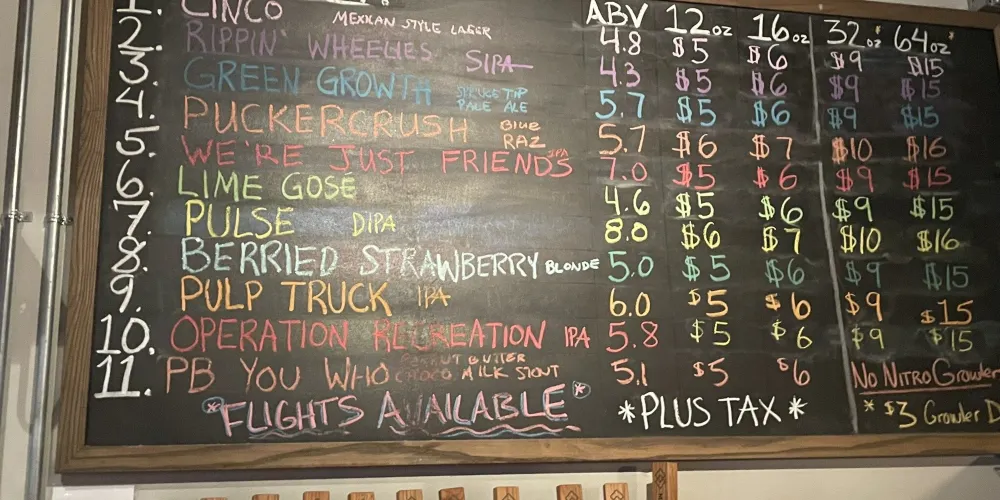 ABV 12oz 16oz 32oz* 64oz*
1. CINCO MEXICAN STYLE LAGER 4.8 $5 $6 $9 $15
2. RIPPIN' WHEELIES SIPA 4.3 $5 $6 $9 $15
3. GREEN GROWTH SPRUCE TIP PALE ALE 5.7 $5 $6 $9 $15
4. PUCKERCRUSH BLUE RAZ 5.7 $6 $7 $10 $16
5. WE'RE JUST FRIENDS IPA 7.0 $5 $6 $9 $15
6. LIME GOSE 4.6 $5 $6 $9 $15
7. PULSE DIPA 8.0 $6 $7 $10 $16
8. BERRIED STRAWBERRY BLONDE 5.0 $5 $6 $9 $15
9. PULP TRUCK IPA 6.0 $5 $6 $9 $15
10. OPERATION RECREATION IPA 5.8 $5 $6 $9 $15
11. PB YOU WHO PEANUT BUTTER CHOCO MILK STOUT 5.1 $5 $6 NO NITRO Growler
*FLIGHTS AVAILABLE* *PLUS TAX* * $3 Growler D